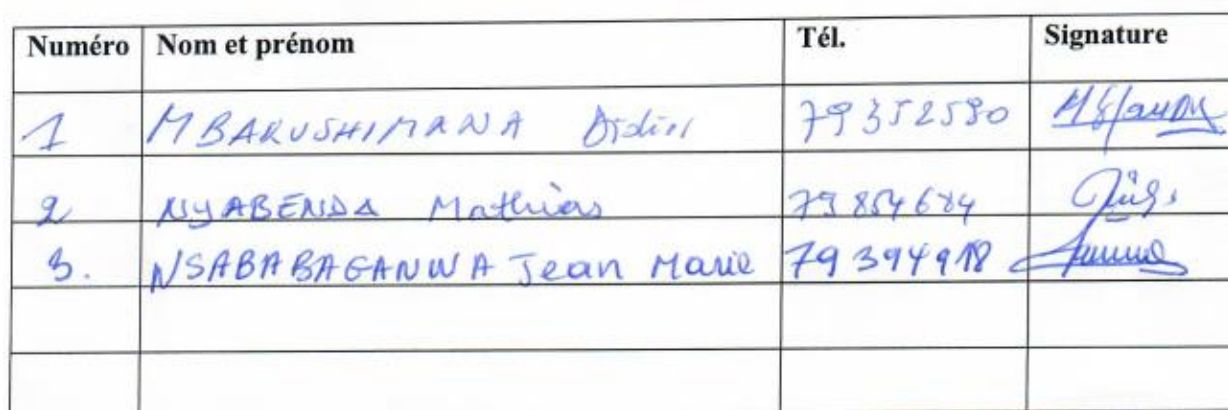 Numéro Nom et prénom Tél. Signature
1 MBARUSHIMANA Didier 79352580
2 NYABENDA Mathias 79854684
3. NSABABAGANWA Jean Marie 79394918